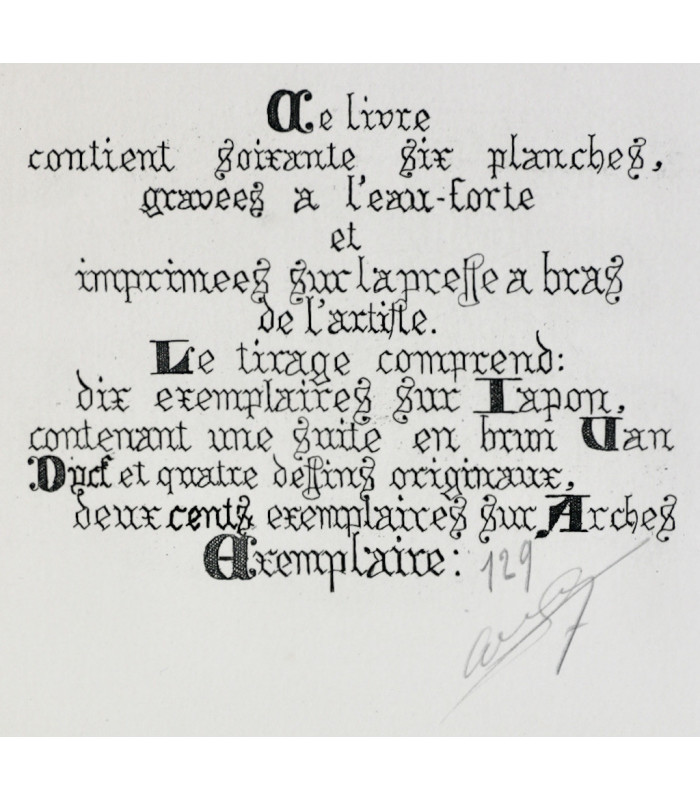 Ce livre
contient soixante six planches,
gravees a l'eau-forte
et
imprimees sur la presse a bras
de l'artiste.
Le tirage comprend:
dix exemplaires sur Iapon,
contenant une suite en brun Van
Dyck et quatre dessins originaux,
deux cents exemplaires sur Arches
Exemplaire: 129